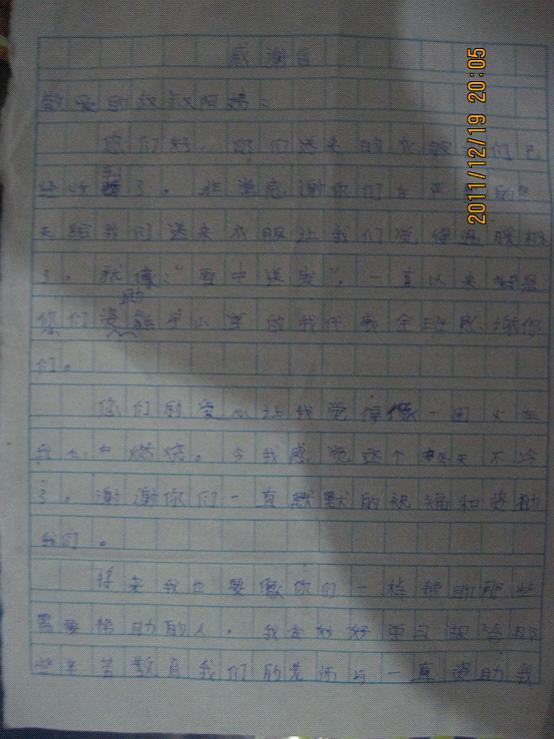 感谢信
敬爱的叔叔阿姨：
您们好 你们送来的衣服我们已
经收到了。非常感谢你们在 的冬
天给我们送来衣服让我们觉得温暖极
了。就像："雪中送炭"，一直以来都是
您们资助 小学的我代表全班感谢你
们。
你们的爱心让我觉得像一团火在
我心中燃烧。令我感觉这个冬天不冷
了。谢谢你们一直默默的祝福和资助
我们。
将来我也要像你们一样帮助那些
需要帮助的人。我会好好学习报答那
些辛苦教育我们的老师与一直资助我
2011/12/19 20:05